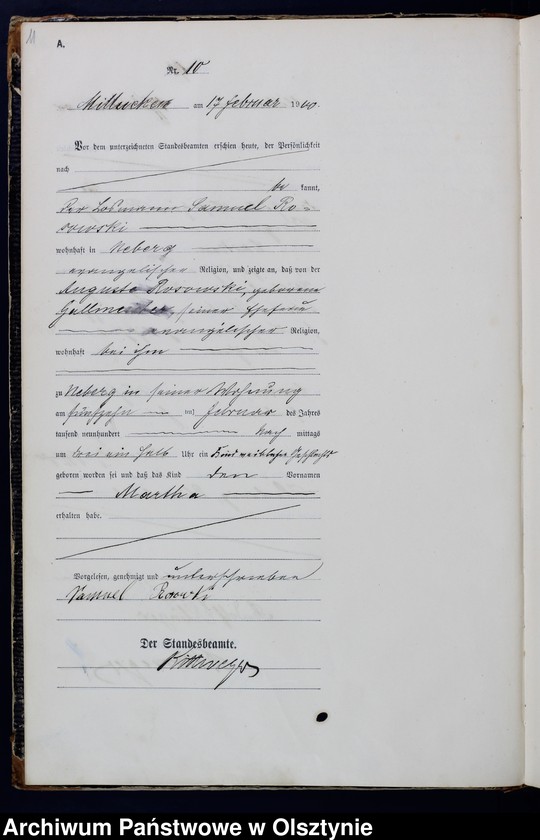 11
A.
Nr. 10
am 17 Februar 1900.
Vor dem unterzeichneten Standesbeamten erschien heute, der Persönlichkeit
nach
be kannt,
der Losmann Samuel Ro-
sowski
wohnhaft in Neberg
evangelischer Religion, und zeigte an, daß von der
Auguste Rosowski, geborene
seiner Ehefrau
evangelischer Religion,
wohnhaft bei ihm
zu Neberg in seiner Wohnung
am fünfzehn ten Februar des Jahres
tausend neunhundert Nach mittags
um ein halb Uhr ein Kind weiblichen Geschlechts
geboren worden sei und daß das Kind den Vornamen
Martha
erhalten habe.
Vorgelesen, genehmigt und unterschrieben
Samuel Rosowski
Der Standesbeamte.
Archiwum Państwowe w Olsztynie